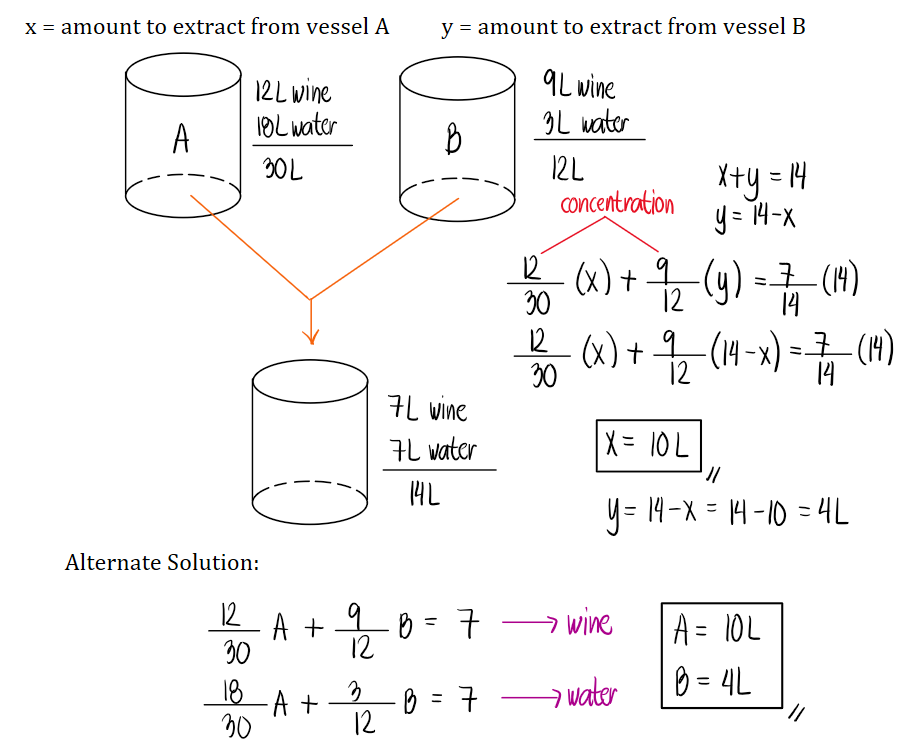 x = amount to extract from vessel A
y = amount to extract from vessel B
A
12L wine
18L water
30L
B
9L wine
3L water
12L
x+y = 14
y = 14-x
concentration
12/30 (x) + 9/12 (y) = 7/14 (14)
12/30 (x) + 9/12 (14-x) = 7/14 (14)
7L wine
7L water
14L
x = 10L
y = 14-x = 14-10 = 4L
Alternate Solution:
12/30 A + 9/12 B = 7 → wine
18/30 A + 3/12 B = 7 → water
A = 10L
B = 4L